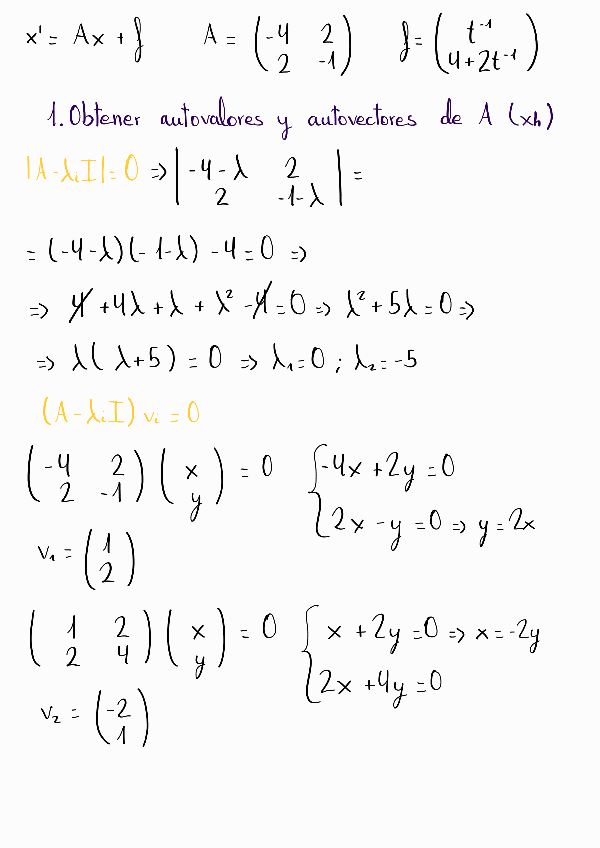 x' = Ax + f A = (-4 2 2 -1) f = (t⁻¹ 4+2t⁻¹)
1. Obtener autovalores y autovectores de A (xh)
|A-λᵢI| = 0 => |-4-λ 2 2 -1-λ| =
= (-4-λ)(-1-λ) -4 = 0 =>
=> 4 + 4λ + λ + λ² - 4 = 0 => λ² + 5λ = 0 =>
=> λ(λ+5) = 0 => λ₁ = 0 ; λ₂ = -5
(A-λᵢI) vᵢ = 0
(-4 2 2 -1) (x y) = 0 { -4x + 2y = 0
2x - y = 0 => y = 2x
v₁ = (1 2)
(1 2 2 4) (x y) = 0 { x + 2y = 0 => x = -2y
2x + 4y = 0
v₂ = (-2 1)